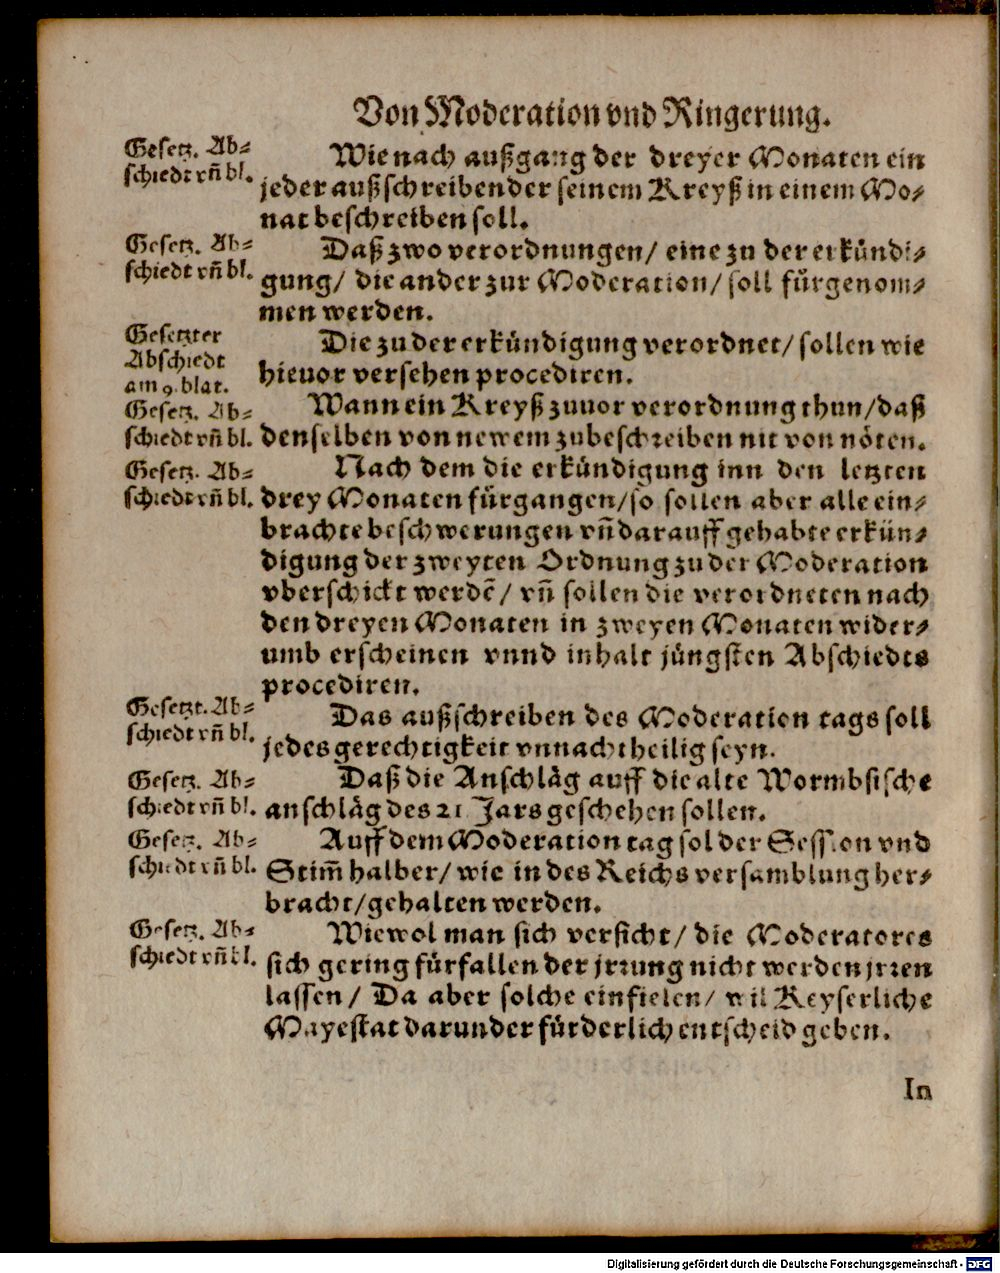 Von Moderation vnd Ringerung.
Gesetz. Ab⸗
schiedt vñ bl.
Wie nach außgang der dreyer Monaten ein
jeder außschreibender seinem Kreyß in einem Mo⸗
nat beschreiben soll.
Gesetz. Ab⸗
schiedt vñ bl.
Daß zwo verordnungen/ eine zu der erkündi⸗
gung/ die ander zur Moderation/ soll fürgenom⸗
men werden.
Gesetzter
Abschiedt
am 9. blat.
Die zu der erkündigung verordnet/ sollen wie
hieuor versehen procediren.
Gesetz. Ab⸗
schiedt vñ bl.
Wann ein Kreyß zuuor verordnung thun/ daß
denselben von newem zubeschreiben nit von nöten.
Gesetz. Ab⸗
schiedt vñ bl.
Nach dem die erkündigung inn den letzten
drey Monaten fürgangen/ so sollen aber alle ein⸗
brachte beschwerungen vñ darauff gehabte erkün⸗
digung der zweyten Ordnung zu der Moderation
vberschickt werdē/ vñ sollen die verordneten nach
den dreyen Monaten in zweyen Monaten wider⸗
umb erscheinen vnnd inhalt jüngsten Abschiedts
procediren.
Gesetzt. Ab⸗
schiedt vñ bl.
Das außschreiben des Moderation tags soll
jedes gerechtigkeit vnnachtheilig seyn.
Gesetz. Ab⸗
schiedt vñ bl.
Daß die Anschläg auff die alte Wormbsische
anschläg des 21 Jars geschehen sollen.
Gesetz. Ab⸗
schiedt vñ bl.
Auff dem Moderation tag sol der Session vnd
Stim̃ halber/ wie in des Reichs versamblung her⸗
bracht/ gehalten werden.
Gesetz. Ab⸗
schiedt vñ bl.
Wiewol man sich versicht/ die Moderatores
sich gering fürfallender jrrung nicht werden jrren
lassen/ Da aber solche einfielen/ wil Keyserliche
Mayestat darunder fürderlich entscheid geben.
In
Digitalisierung gefördert durch die Deutsche Forschungsgemeinschaft - DFG